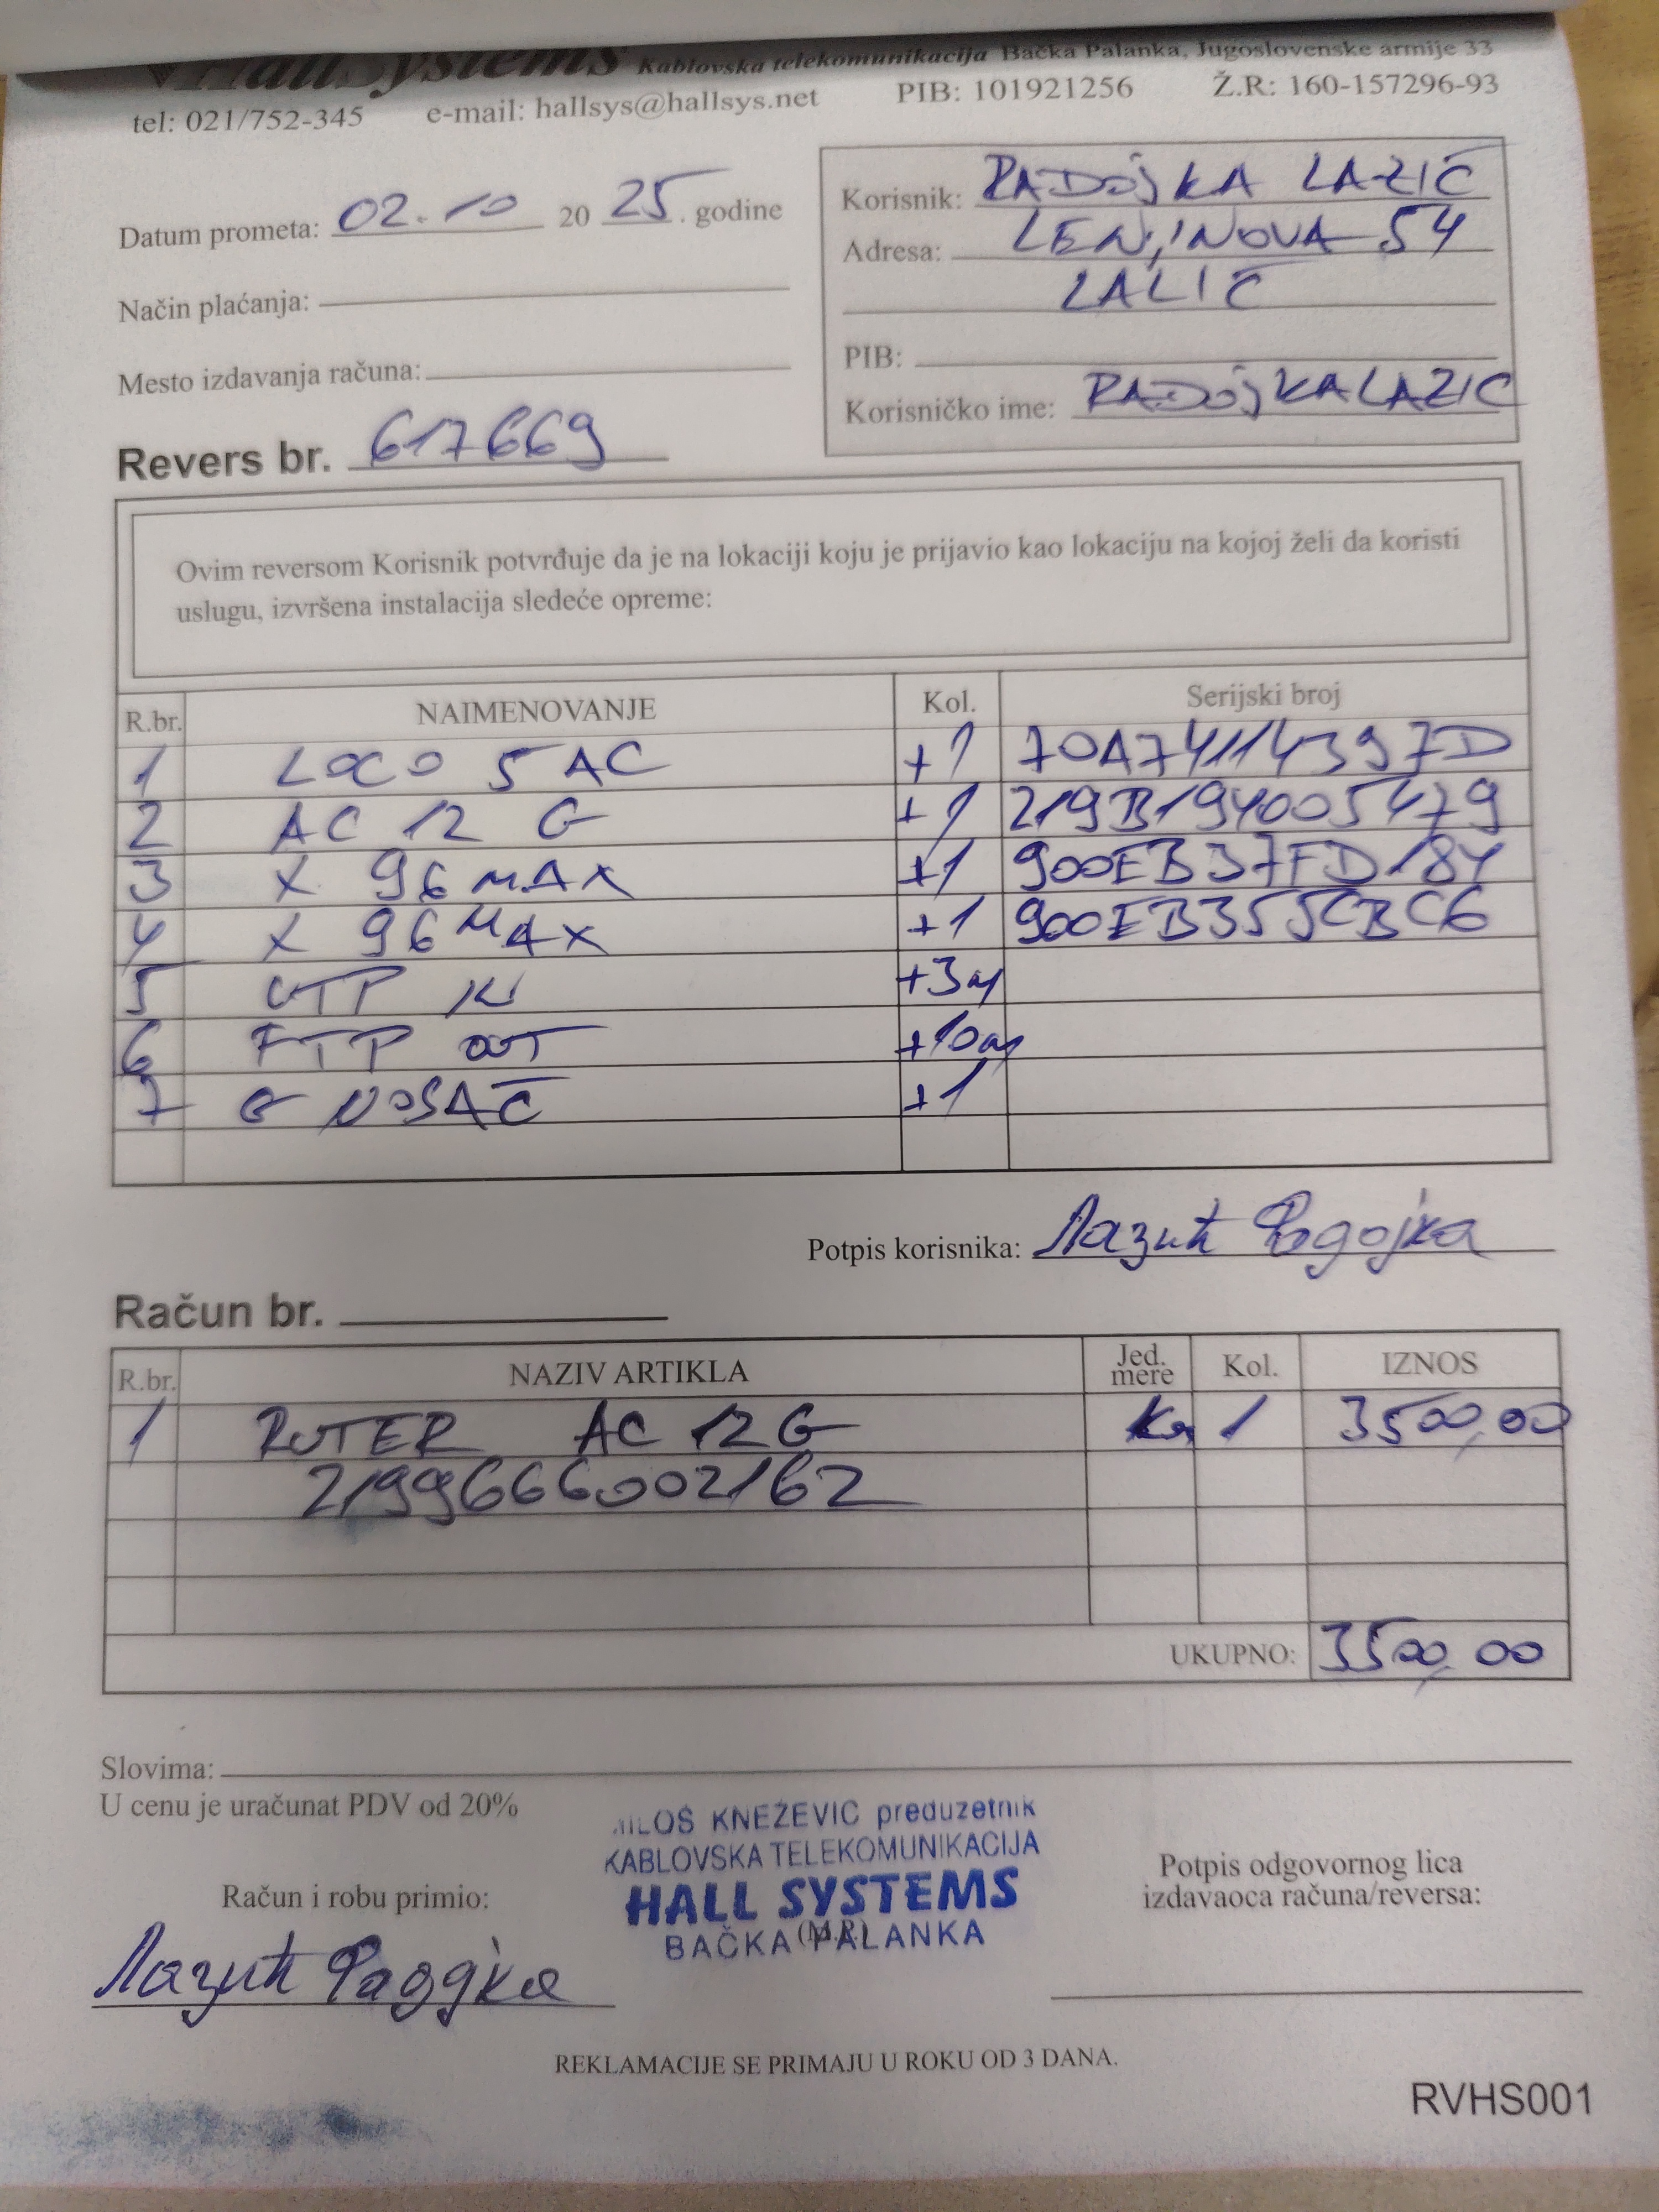 HallSystems Kablovska telekomunikacija Bačka Palanka, Jugoslovenske armije 33
tel: 021/752-345 e-mail: hallsys@hallsys.net PIB: 101921256 Ž.R: 160-157296-93
Datum prometa: 02.10 20 25. godine
Način plaćanja:
Mesto izdavanja računa:
Korisnik: RADOJKA LAZIĆ
Adresa: LENJINOVA 54
LALIĆ
PIB:
Korisničko ime: RADOJKALAZIC
Revers br. 617669
Ovim reversom Korisnik potvrđuje da je na lokaciji koju je prijavio kao lokaciju na kojoj želi da koristi
uslugu, izvršena instalacija sledeće opreme:
R.br. NAIMENOVANJE Kol. Serijski broj
1 LOCO 5 AC +1 70A74114397D
2 AC 12 G +1 219B194005479
3 X 96 MAX +1 900EB37FD184
4 X 96 MAX +1 900EB355CBC6
5 UTP IN +3m
6 FTP OUT +10m
7 G NOSAČ +1
Potpis korisnika: Лазић Радојка
Račun br.
R.br. NAZIV ARTIKLA Jed. mere Kol. IZNOS
1 RUTER AC 12G 1 3500,00
2199666002162
UKUPNO: 3500,00
Slovima:
U cenu je uračunat PDV od 20%
MILOŠ KNEŽEVIĆ preduzetnik
KABLOVSKA TELEKOMUNIKACIJA
HALL SYSTEMS
BAČKA PALANKA
(M.P.)
Račun i robu primio:
Лазић Радојка
Potpis odgovornog lica
izdavaoca računa/reversa:
REKLAMACIJE SE PRIMAJU U ROKU OD 3 DANA.
RVHS001